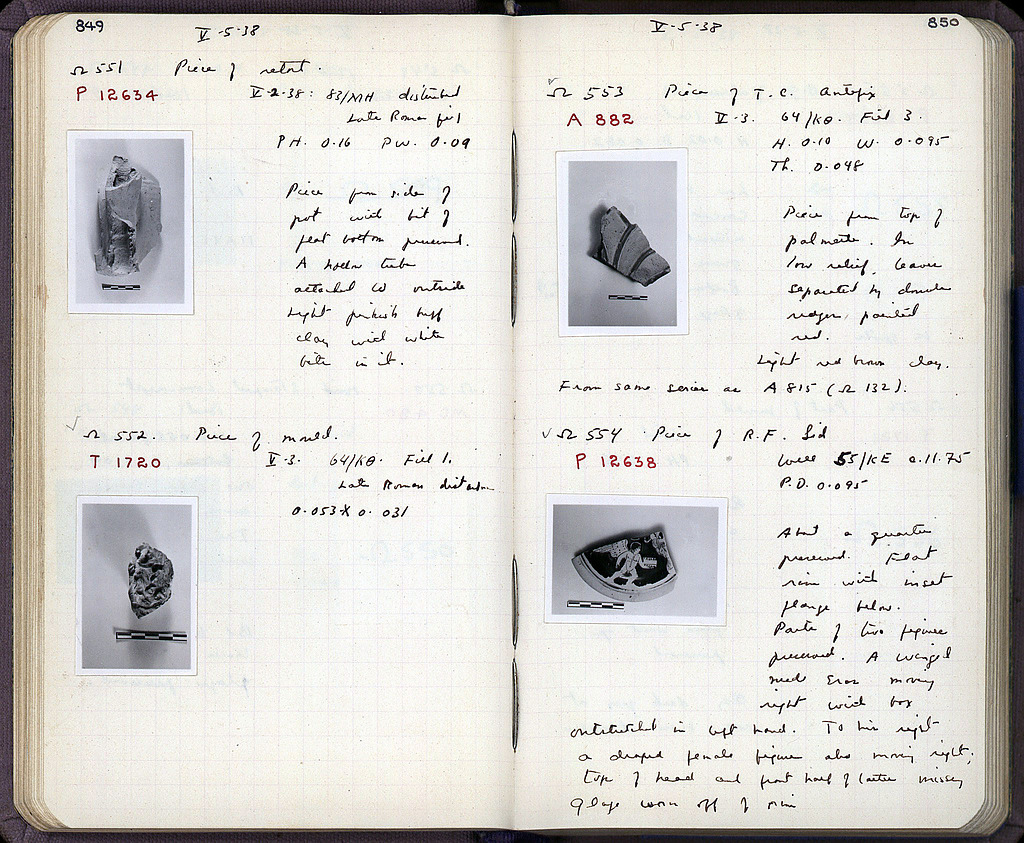 849
V-5-38
Ω 551 Piece of retort.
P 12634
V-2-38: 83/MH disturbed
Late Roman fill
PH. 0.16 PW. 0.09
Piece from side of
pot with bit of
flat bottom preserved.
A hollow tube
attached to outside
Light pinkish buff
clay with white
bits in it.
Ω 552. Piece of mould.
T 1720
V-3. 64/KΘ. Fill 1.
Late Roman disturbance
0.053 X 0.031
850
V-5-38
Ω 553 Piece of T.C. Antefix
A 882
V-3. 64/KΘ. Fill 3.
H. 0.10 W. 0.095
Th. 0.048
Piece from top of
palmette. In
low relief, leaves
separated by double
ridges, painted
red.
Light red brown clay.
From same series as A 815 (Ω 132).
Ω 554 Piece of R.F. Lid
P 12638
Well 55/KE a.11.75
P.D. 0.095
About a quarter
preserved. Flat
rim with inset
flange below.
Parts of two figures
preserved. A winged
nude Eros moving
right with box
outstretched in left hand. To his right
a draped female figure also moving right;
top of head and front half of latter missing
Glaze worn off of rim